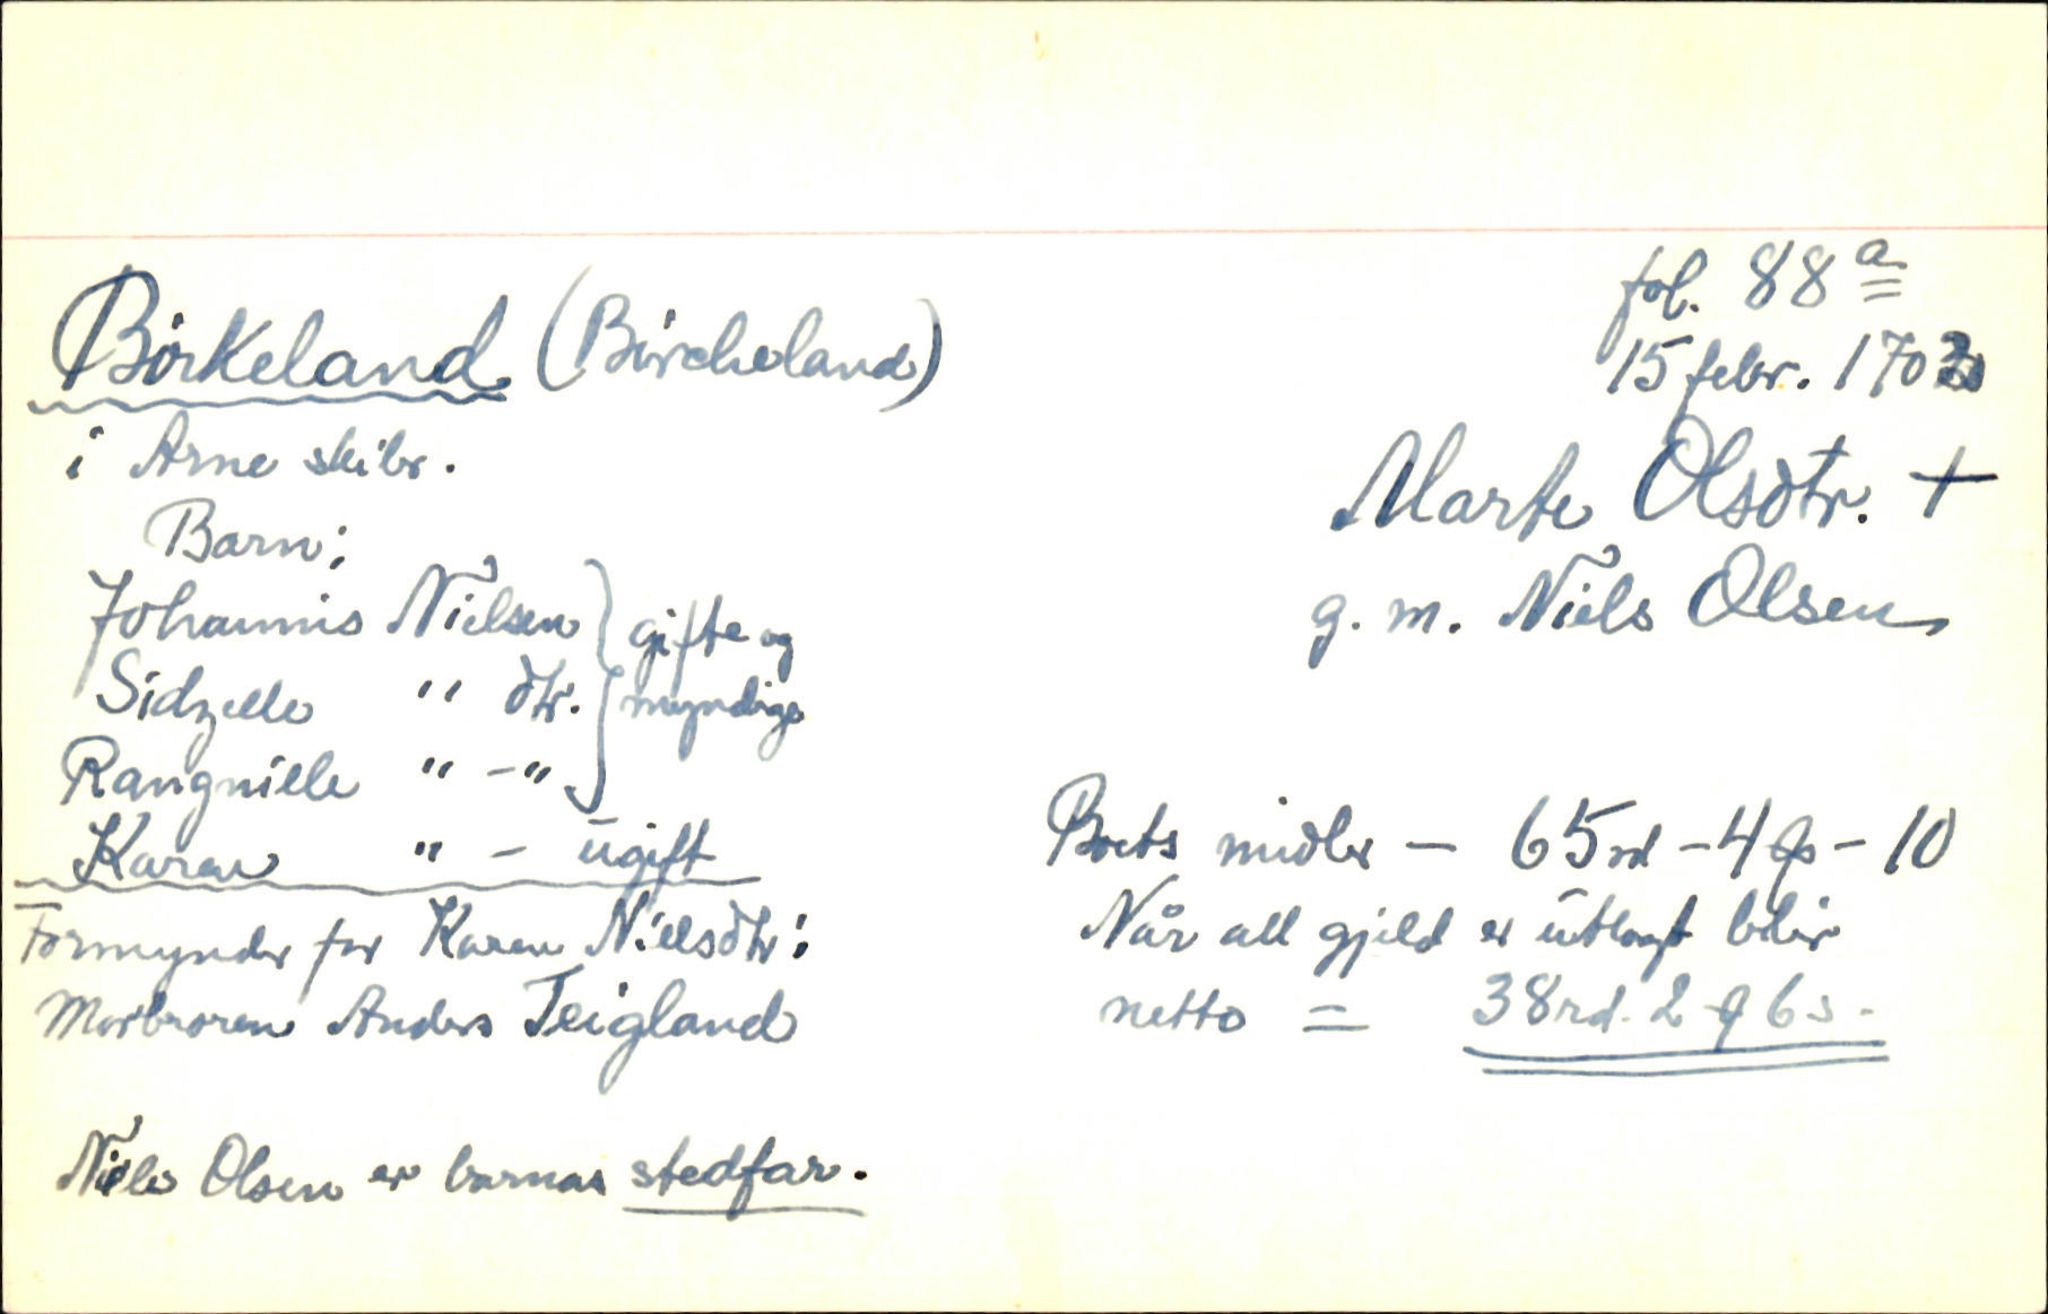 fol. 88a
15 febr. 1703
Birkeland (Bircheland)
i Arne skibr.
Marte Olsdtr. +
g. m. Niels Olsen
Barn:
Johannis Nielsen } gifte og
Sidzelle " dtr. } myndige
Rangnille " - "
Karen " - ugift
Formynder for Karen Nielsdtr:
Morbroren Anders Teigland
Boets midler - 65 rd - 4 - 10
Når all gjeld er utlagt blir
netto = 38 rd. 2 6 s.
Niels Olsen er barnas stedfar.